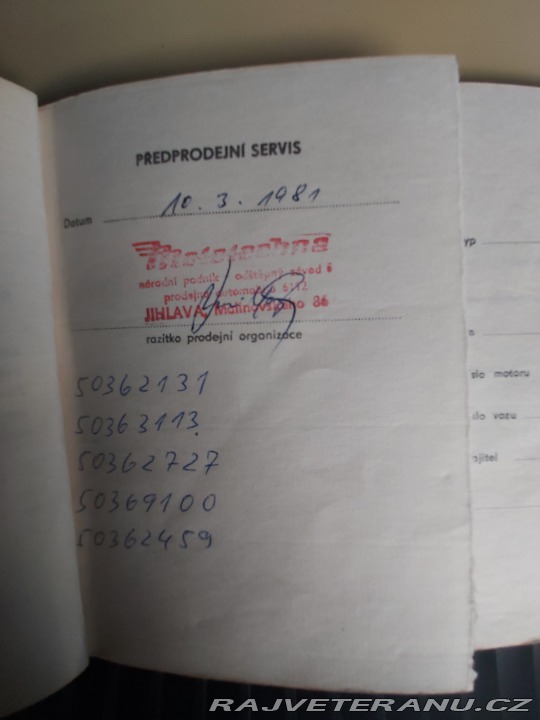 PŘEDPRODEJNÍ SERVIS
Datum 10. 3. 1981
Mototechna
národní podnik odštěpný závod 6
prodejna automobilů 6112
JIHLAVA, Malinovského 86
razítko prodejní organizace
50362131
50363113.
50362727
50369100
50362459
yp
slo motoru
slo vozu
ajitel
RAJVETERANU.CZ